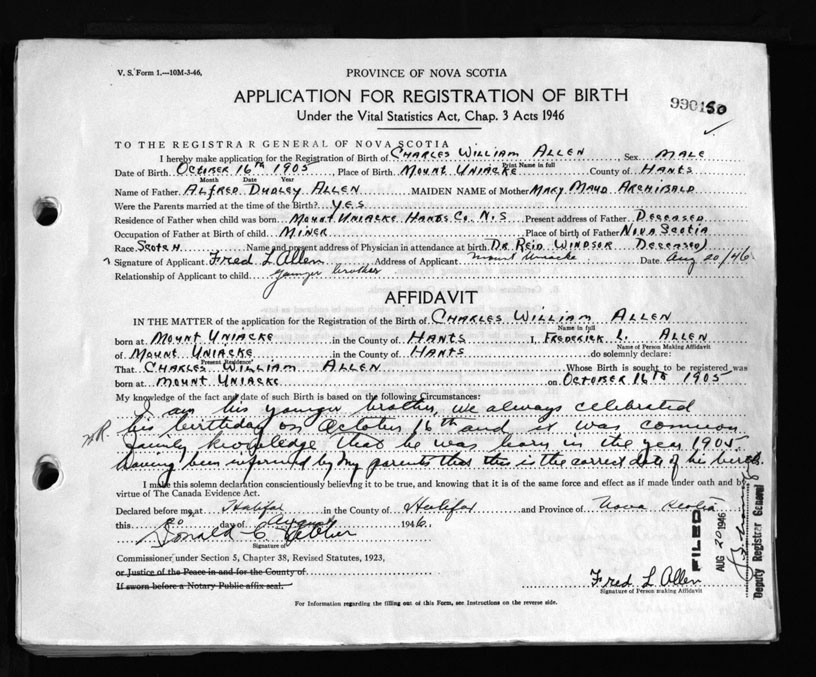 V. S. Form 1.—10M-3-46.
PROVINCE OF NOVA SCOTIA
APPLICATION FOR REGISTRATION OF BIRTH
990150
Under the Vital Statistics Act, Chap. 3 Acts 1946
TO THE REGISTRAR GENERAL OF NOVA SCOTIA
I hereby make application for the Registration of Birth of CHARLES WILLIAM ALLEN Sex MALE
Print Name in full
Date of Birth OCTOBER 16TH 1905 Place of Birth MOUNT UNIACKE County of HANTS
Month Date Year
Name of Father ALFRED DUDLEY ALLEN MAIDEN NAME of Mother MARY MAUD ARCHIBALD
Were the Parents married at the time of the Birth? YES
Residence of Father when child was born MOUNT UNIACKE HANTS CO. N.S Present address of Father DECEASED
Occupation of Father at Birth of child MINER Place of birth of Father NOVA SCOTIA
Race SCOTCH Name and present address of Physician in attendance at birth DR REID WINDSOR DECEASED)
Signature of Applicant Fred L Allen Address of Applicant Mount Uniacke Date Aug 20/46
Relationship of Applicant to child younger brother
AFFIDAVIT
IN THE MATTER of the application for the Registration of the Birth of CHARLES WILLIAM ALLEN
Name in full
born at MOUNT UNIACKE in the County of HANTS I, FREDERICK L. ALLEN
Name of Person Making Affidavit
of MOUNT UNIACKE in the County of HANTS do solemnly declare:
Present Residence
That CHARLES WILLIAM ALLEN Whose Birth is sought to be registered was
born at MOUNT UNIACKE on OCTOBER 16TH 1905
My knowledge of the fact and date of such Birth is based on the following Circumstances:
I am his younger brother, we always celebrated
his birthday on October 16th and it was common
family knowledge that he was born in the year 1905
having been informed by my parents that this is the correct date of his birth.
I make this solemn declaration conscientiously believing it to be true, and knowing that it is of the same force and effect as if made under oath and by
virtue of The Canada Evidence Act.
Declared before me at Halifax in the County of Halifax and Province of Nova Scotia
this 20 day of August 1946.
Donald C.
Signature of
Commissioner under Section 5, Chapter 38, Revised Statutes, 1923,
or Justice of the Peace in and for the County of
If sworn before a Notary Public affix seal.
Fred L Allen
Signature of Person making Affidavit
For Information regarding the filling out of this Form, see Instructions on the reverse side.
FILED
AUG 20 1946
Deputy Registrar General